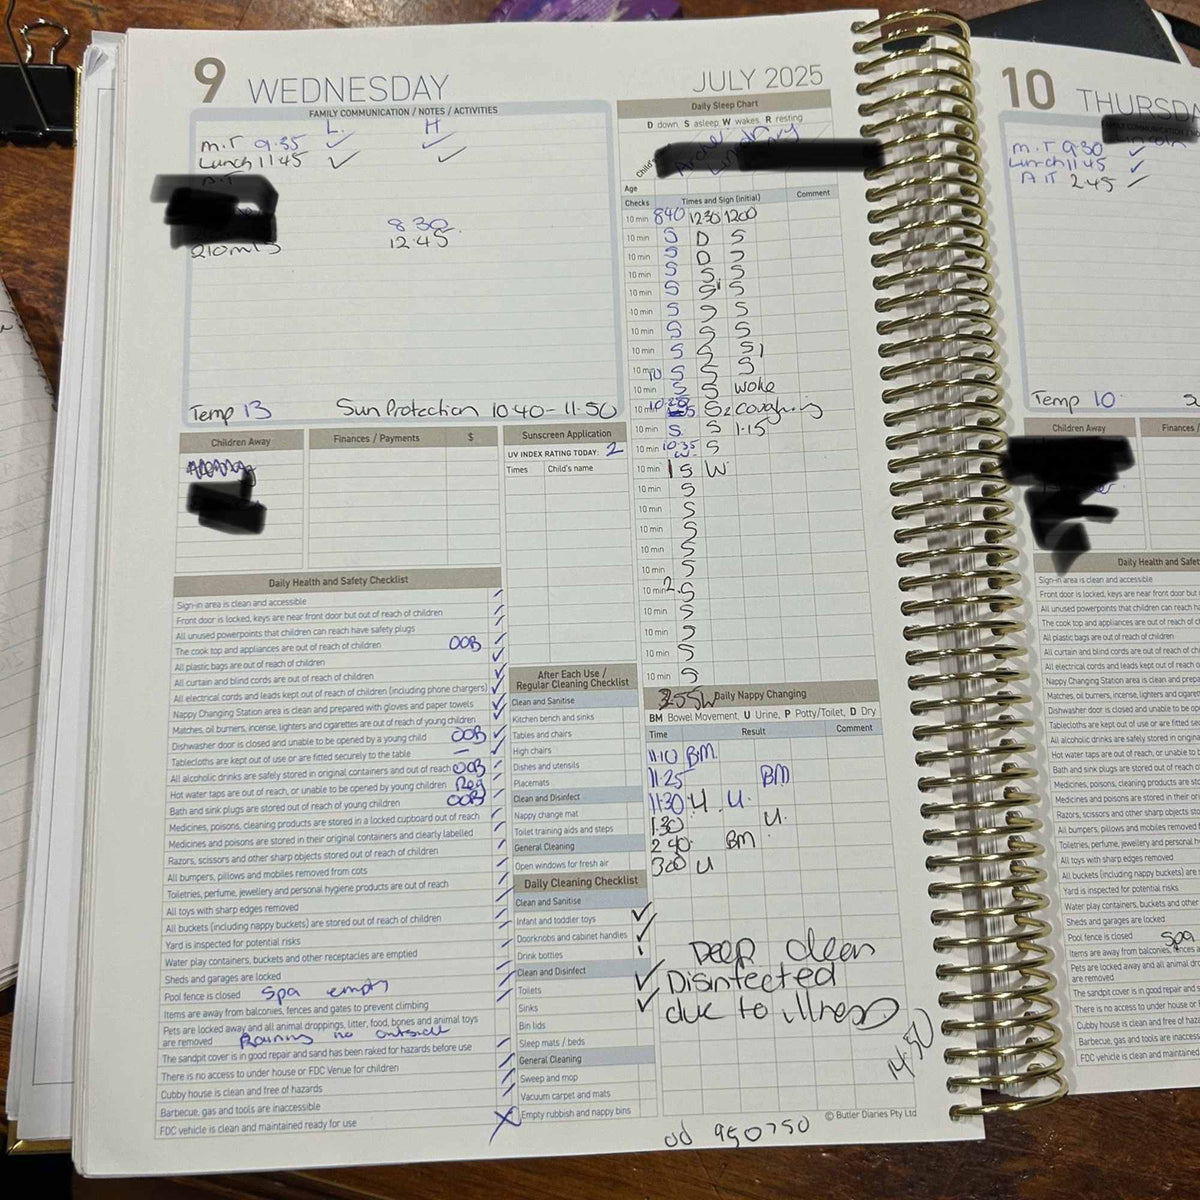 9 WEDNESDAY
JULY 2025
FAMILY COMMUNICATION / NOTES / ACTIVITIES
L. H
m.T 9.35 ✓ ✓
Lunch 1145 ✓ ✓
A.T
8 30
210mls 12.45
Temp 13 Sun Protection 10 40 - 11.50
Daily Sleep Chart
D down S asleep W wakes R resting
Child's
Age
Checks Times and Sign (initial) Comment
10 min 840 1230 1200
10 min S D S
10 min S D S
10 min S S S
10 min S S S
10 min S S S
10 min S S S
10 min S S S
10 min S S S
10 min S S woke
10 min S coughing
10 min S S 1.15
10 min 10.35 S
10 min 1 S W
10 min S
10 min S
10 min S
10 min S
10 min S
10 min 2 S
10 min S
10 min S
10 min S
10 min S
Children Away
Finances / Payments $
Sunscreen Application
UV INDEX RATING TODAY: 2
Times Child's name
Daily Health and Safety Checklist
Sign-in area is clean and accessible
Front door is locked, keys are near front door but out of reach of children
All unused powerpoints that children can reach have safety plugs
The cook top and appliances are out of reach of children OOB
All plastic bags are out of reach of children
All curtain and blind cords are out of reach of children
All electrical cords and leads kept out of reach of children (including phone chargers)
Nappy Changing Station area is clean and prepared with gloves and paper towels
Matches, oil burners, incense, lighters and cigarettes are out of reach of young children
Dishwasher door is closed and unable to be opened by a young child OOB
Tablecloths are kept out of use or are fitted securely to the table —
All alcoholic drinks are safely stored in original containers and out of reach OOB
Hot water taps are out of reach, or unable to be opened by young children Reg
Bath and sink plugs are stored out of reach of young children OOB
Medicines, poisons, cleaning products are stored in a locked cupboard out of reach
Medicines and poisons are stored in their original containers and clearly labelled
Razors, scissors and other sharp objects stored out of reach of children
All bumpers, pillows and mobiles removed from cots
Toiletries, perfume, jewellery and personal hygiene products are out of reach
All toys with sharp edges removed
All buckets (including nappy buckets) are stored out of reach of children
Yard is inspected for potential risks
Water play containers, buckets and other receptacles are emptied
Sheds and garages are locked
Pool fence is closed Spa empty
Items are away from balconies, fences and gates to prevent climbing
Pets are locked away and all animal droppings, litter, food, bones and animal toys
are removed Raining no outside
The sandpit cover is in good repair and sand has been raked for hazards before use
There is no access to under house or FDC Venue for children
Cubby house is clean and free of hazards
Barbecue, gas and tools are inaccessible
FDC vehicle is clean and maintained ready for use
After Each Use /
Regular Cleaning Checklist
Clean and Sanitise
Kitchen bench and sinks
Tables and chairs
High chairs
Dishes and utensils
Placemats
Clean and Disinfect
Nappy change mat
Toilet training aids and steps
General Cleaning
Open windows for fresh air
Daily Cleaning Checklist
Clean and Sanitise
Infant and toddler toys ✓
Doorknobs and cabinet handles ✓
Drink bottles ✓
Clean and Disinfect
Toilets ✓
Sinks ✓
Bin lids
Sleep mats / beds
General Cleaning
Sweep and mop
Vacuum carpet and mats
Empty rubbish and nappy bins
Daily Nappy Changing
BM Bowel Movement, U Urine, P Potty/Toilet, D Dry
Time Result Comment
11.10 BM
11.25 BM
1130 U U.
1.30 U.
2 40 BM
300 U
Deep clean
Disinfected
due to illness
14.50
© Butler Diaries Pty Ltd
od 950750
10 THURSDA
m.T 9.30 ✓
Lunch 1145 ✓
A T 2.45 ✓
Temp 10
Children Away
Finances /
Daily Health and Safet
Sign-in area is clean and accessible
Front door is locked, keys are near front door but out of reach of
All unused powerpoints that children can reach ha
The cook top and appliances are out of reach of
All plastic bags are out of reach of children
All curtain and blind cords are out of reach of c
All electrical cords and leads kept out of reach of
Nappy Changing Station area is clean and prepa
Matches, oil burners, incense, lighters and cigar
Dishwasher door is closed and unable to be o
Tablecloths are kept out of use or are fitted
All alcoholic drinks are safely stored in origina
Hot water taps are out of reach, or unable to
Bath and sink plugs are stored out of reach
Medicines, poisons, cleaning products are sto
Medicines and poisons are stored in their orig
Razors, scissors and other sharp objects sto
All bumpers, pillows and mobiles removed
Toiletries, perfume, jewellery and personal h
All toys with sharp edges removed
All buckets (including nappy buckets) are st
Yard is inspected for potential risks
Water play containers, buckets and other
Sheds and garages are locked
Pool fence is closed Spa
Items are away from balconies, fences a
Pets are locked away and all animal dro
are removed
The sandpit cover is in good repair and s
There is no access to under house or
Cubby house is clean and free of haza
Barbecue, gas and tools are inaccess
FDC vehicle is clean and maintained